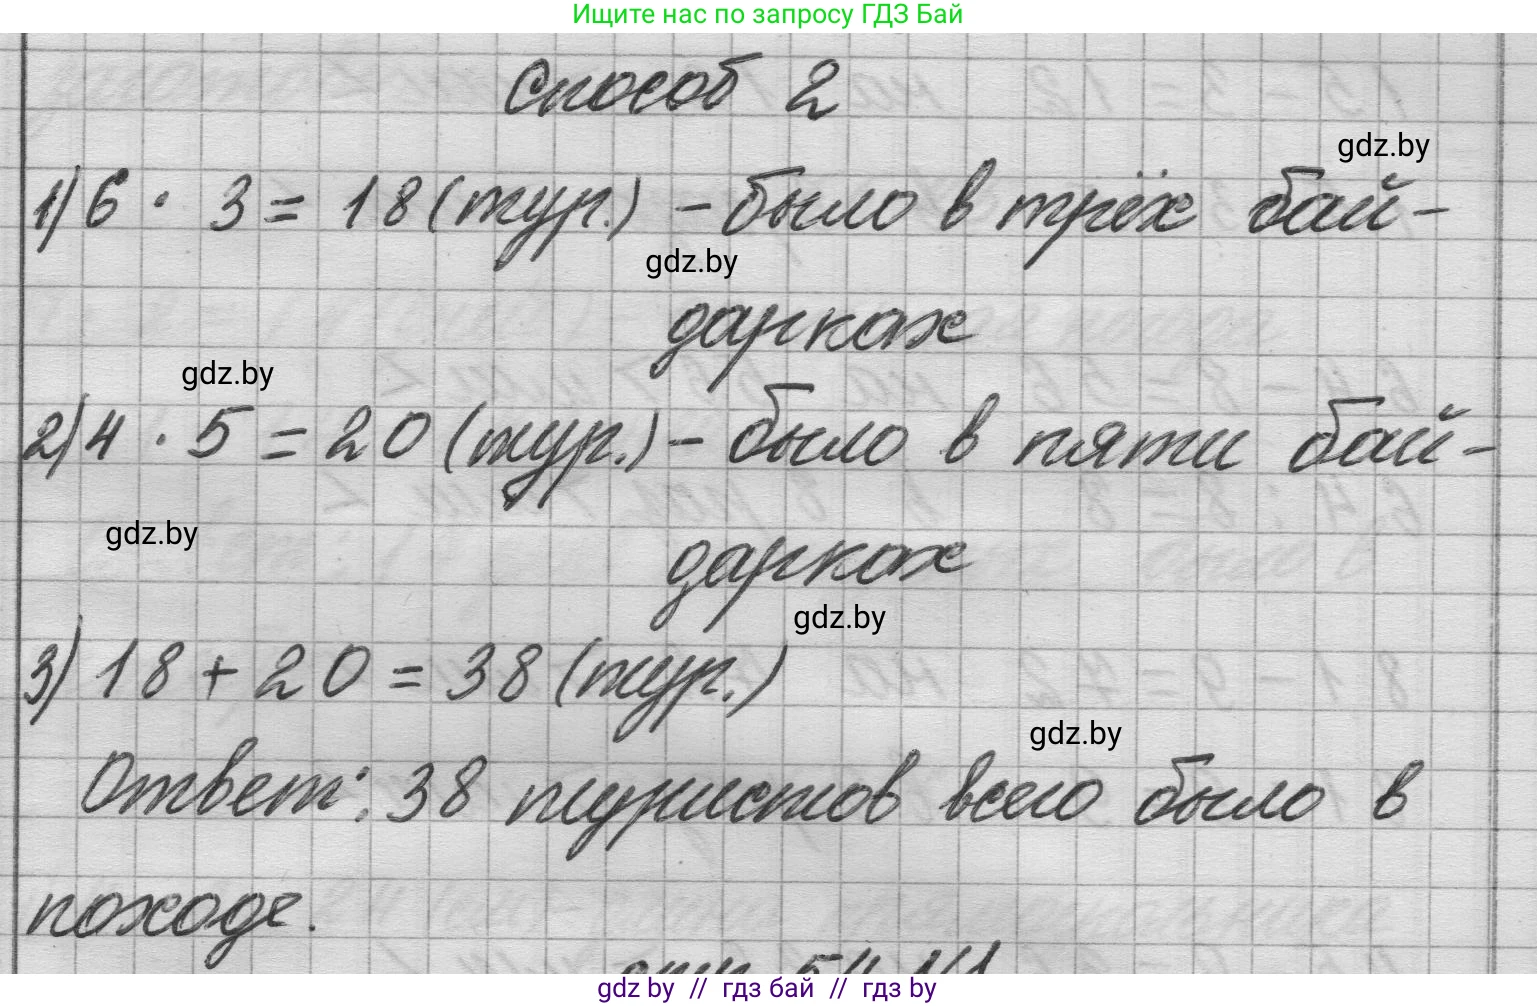 Ищите нас по запросу ГДЗ Бай
Способ 2
gdz.by
1) 6 · 3 = 18 (тур.) – было в трёх бай-
gdz.by
дарках
gdz.by
2) 4 · 5 = 20 (тур.) – было в пяти бай-
gdz.by
дарках
gdz.by
3) 18 + 20 = 38 (тур.)
gdz.by
Ответ: 38 туристов всего было в
походе.
gdz by // гдз бай // gdz by